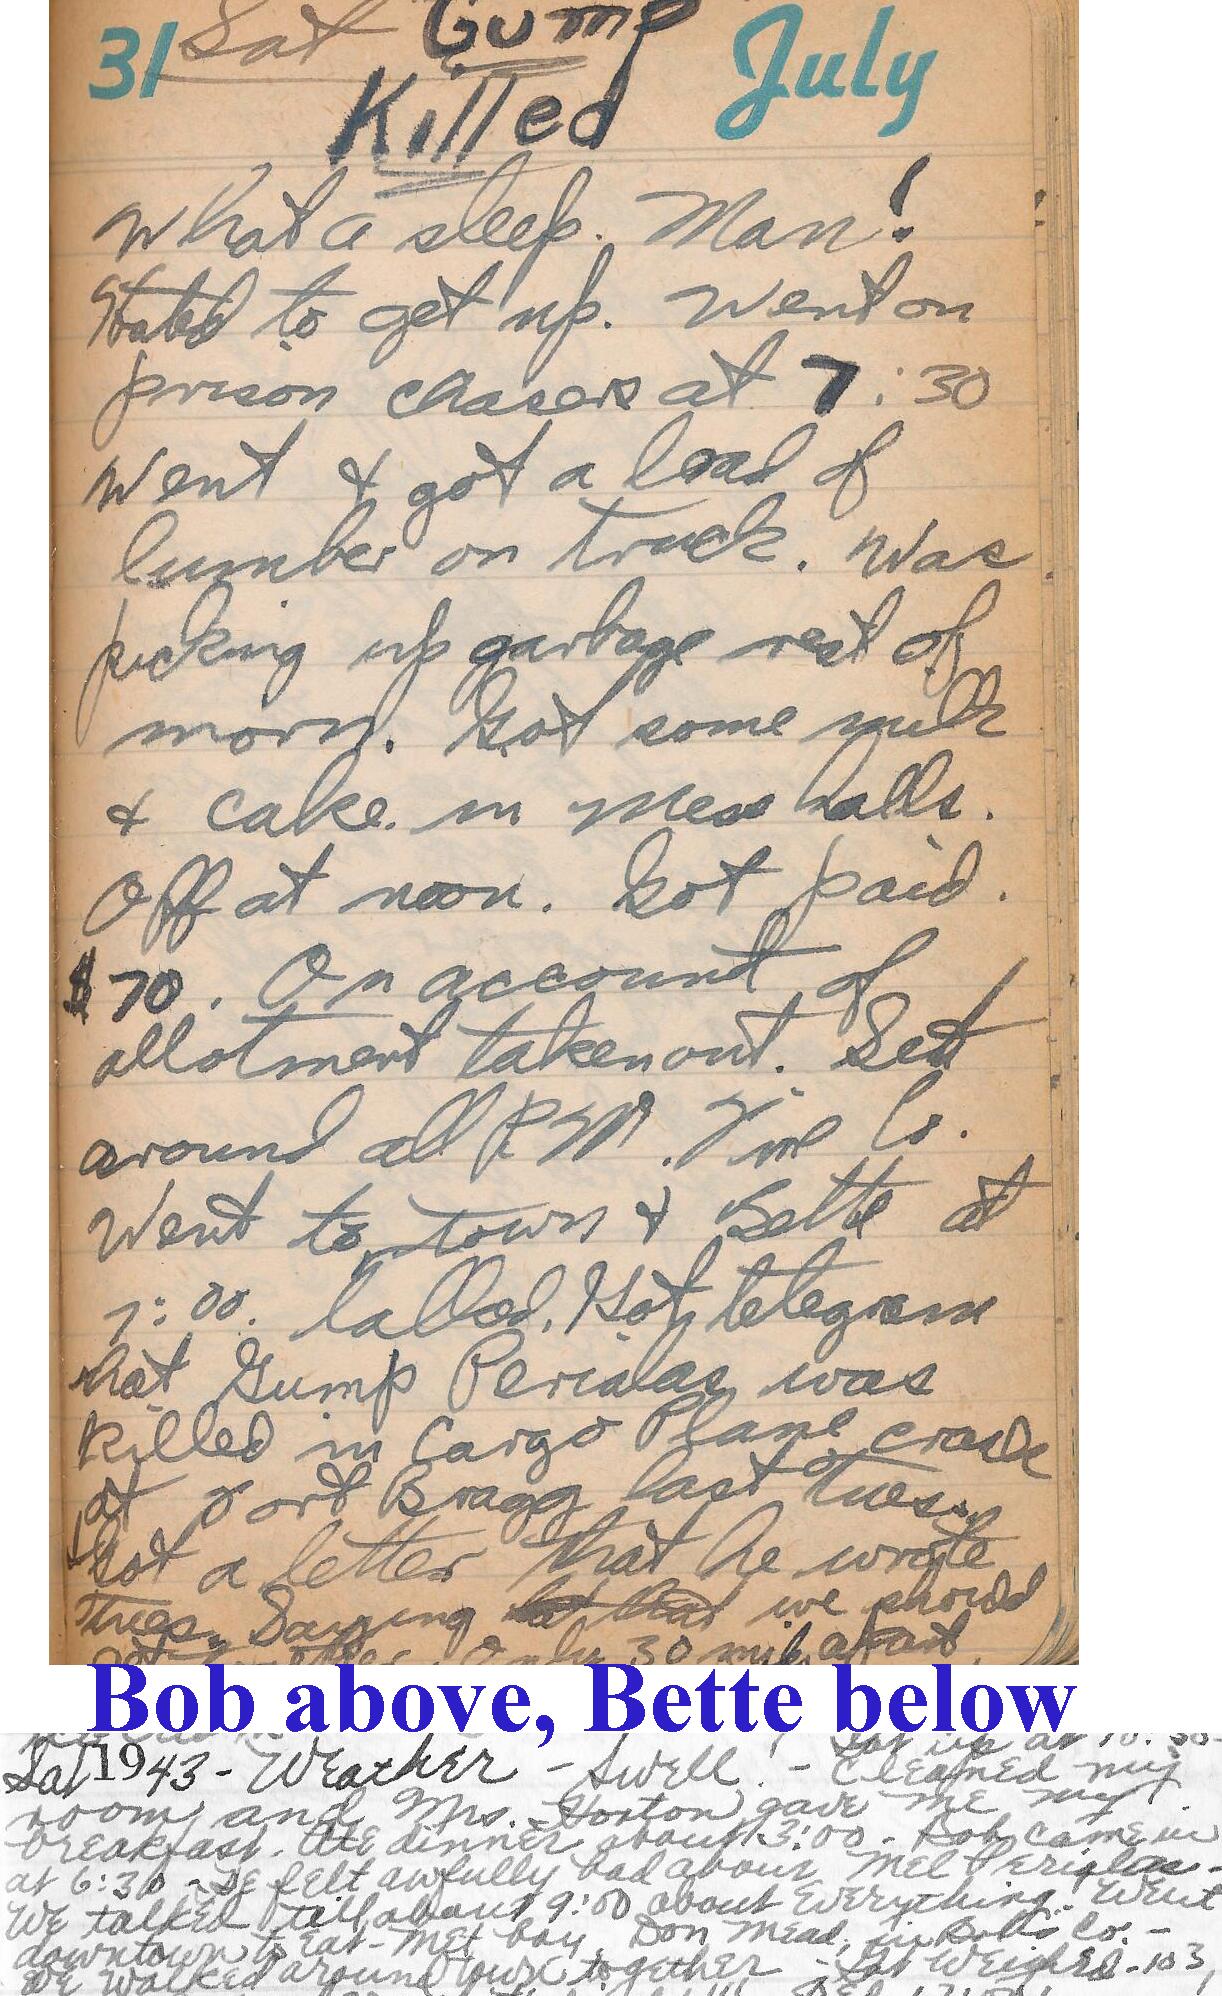 31 Sat Gump July
Killed
What a sleep. Man!
Hated to get up. Went on
prison chasers at 7:30
Went & got a load of
lumber on truck. Was
picking up garbage rest of
morn. Got some milk
& cake. in mess halls.
Off at noon. Got paid.
$70. On account of
allotment taken out. Sett
around all P.M. in Co.
Went to town & Bette at
7:00. Called. Got telegram
that Gump Periolas was
killed in Cargo Plane crash
at Fort Bragg last Tues.
Got a letter that he wrote
Tues. Saying we should
Only 30 mil. apart.
Bob above, Bette below
Got up at 10:30
Sat 1943 - Weather - Swell! - Cleaned my
room, and Mrs. Horton gave me my
breakfast. Ate dinner about 3:00 - Bob came in
at 6:30 - He felt awfully bad about Mel Periolas -
We talked till about 9:00 about everything. Went
downtown to eat - Met boy, Don Mead, in Bob's Co. -
We walked around town together - Got weighed - 103,